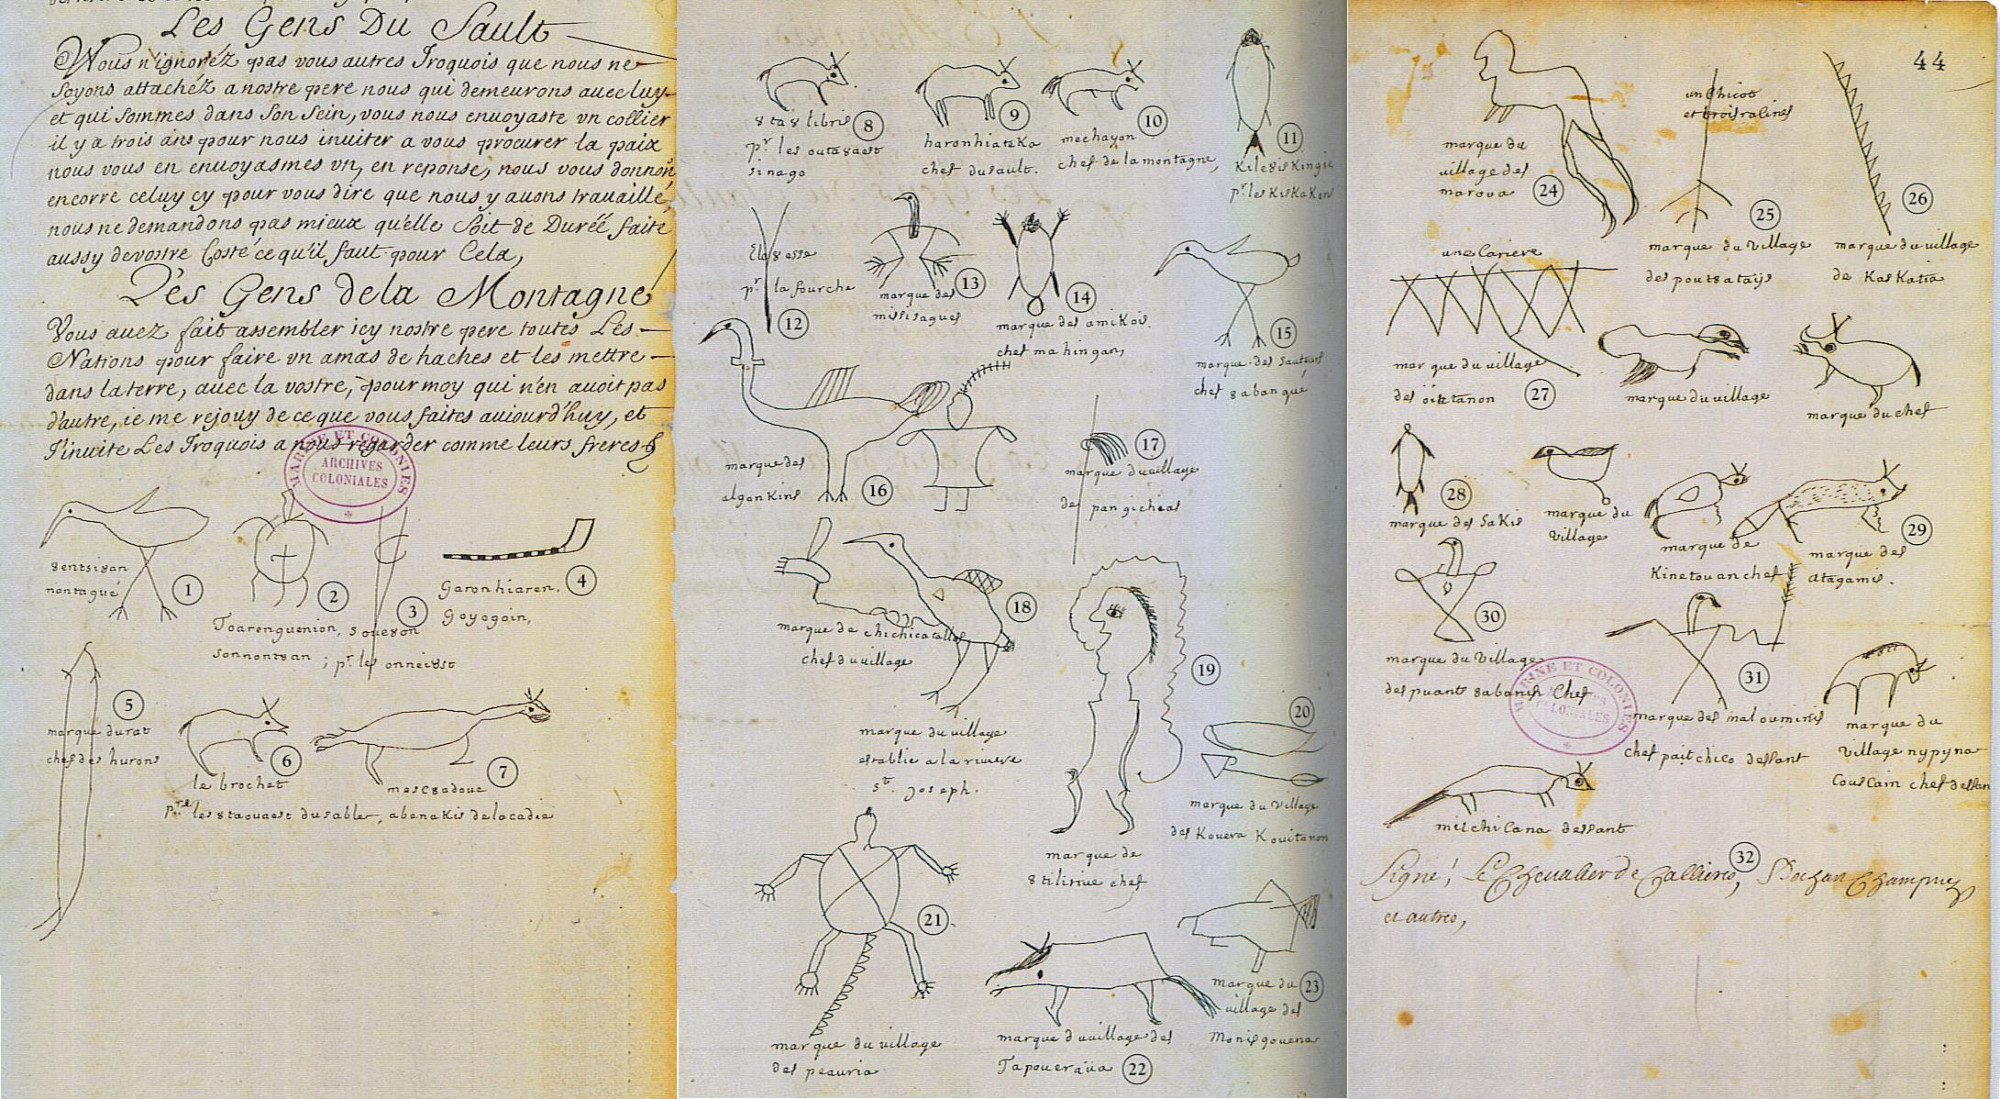 Les Gens Du Sault
Vous n'ignoréz pas vous autres Iroquois que nous ne
soyons attachéz a nostre pere nous qui demeurons avec luy
et qui sommes dans son sein, vous nous enuoyaste vn collier
il y a trois ans pour nous inuiter a vous procurer la paix
nous vous en enuoyasmes vn, en reponse, nous vous donnons
encorre celuy cy pour vous dire que nous y auons trauaillé,
nous ne demandons pas mieux qu'elle soit de Duréé faite
aussy devostre Costé ce qu'il faut pour Cela,
Les Gens dela Montagne
Vous auez fait assembler icy nostre pere toutes Les
Nations pour faire vn amas de haches et les mettre
dans la terre, auec la vostre, pour moy qui n'en auoit pas
d'autre, ie me rejouy de ce que vous faites aujourd'huy, et
J'inuite Les Iroquois a nous regarder comme leurs freres
MARINE ET COLONIES
ARCHIVES
COLONIALES
8entsi8an
nontagué
1
2
Toarenguenion,
sonnont8an
3
;pr. les onnei8st
4
Garonhiaren.
Goyogoin,
5
marque du rat
chef des hurons
6
le brochet
pre les 8taouaest du sable,
7
mesc8adoue
abenakis de lacadie
8
8ta8libris
pr. les outa8aest
sinago
9
haronhiateka
chef du sault.
10
mechayon
chef de la montagne,
11
pr. les KisKaKons
12
Ela8esse
pr. la fourche
13
marque des
missisagues
14
marque des amikois.
chef mahingan,
15
marque des sauteurs
chef 8abangué
16
marque des
algonkins
17
marque du village
de pangicheas
18
marque de chichicatallo
chef du village
marque du village
establie a la riviere
st. Joseph.
19
marque de
8tilirine chef
20
marque du village
des Kouera Kouitanon
21
marque du village
des peauria
22
marque d uuillage des
Tapoueraüa
23
marque du
village des
Monisgouena
44
24
marque du
village des
maroua
25
un chicot
et trois racines
marque du village
des pout8ataÿs
26
marque du village
de KasKaKia
27
marque du village
marque du village
marque du chef
28
marque des saKis
marque du
village
29
marque de
Kinetouan chef
marque des
atagamis.
30
marque du village
des puants 8abanis Chef
MARINE ET COLONIES
ARCHIVES
COLONIALES
31
marque des maloumines
chef paitchico dessant
marque du
village nypyna
Couscain chef dessan
milchilana dessant
32
Signé, Le Chevalier de Callieres, Bochart Champigny
et autres,